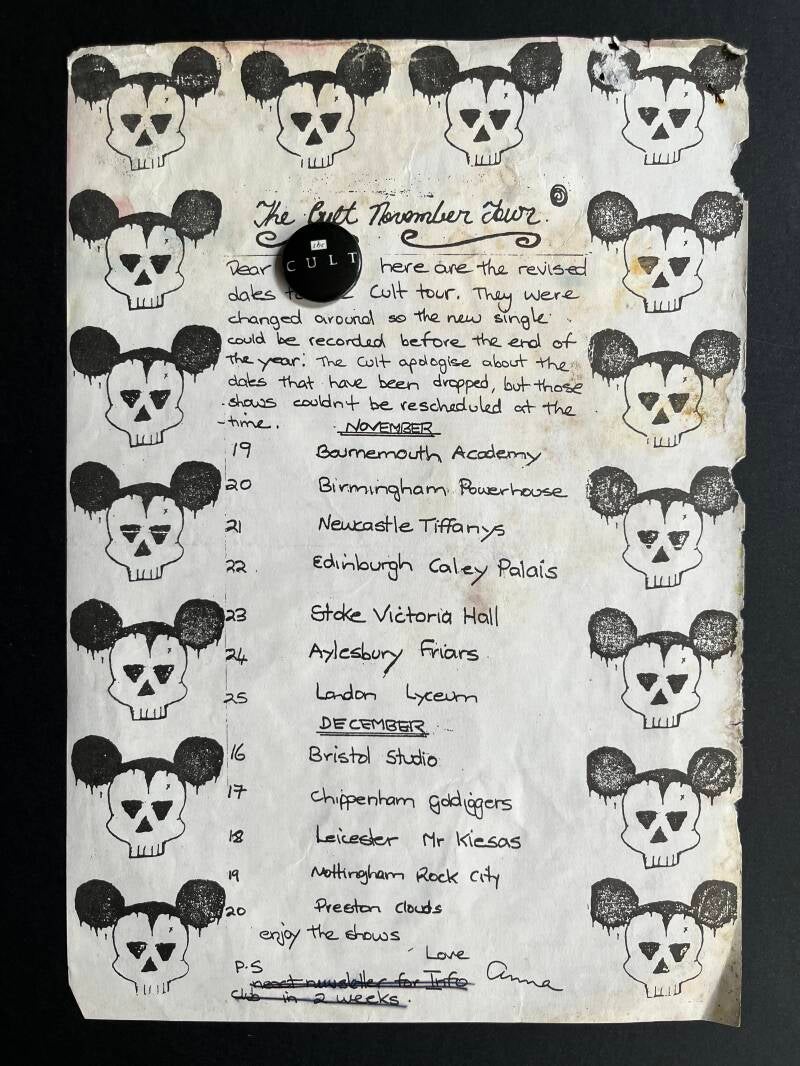 The Cult November Tour.
the
CULT
Dear here are the revised
dates Cult tour. They were
changed around so the new single
could be recorded before the end of
the year. The Cult apologise about the
dates that have been dropped, but those
shows couldn't be rescheduled at the
time.
NOVEMBER
19 Bournemouth Academy
20 Birmingham Powerhouse
21 Newcastle Tiffanys
22 Edinburgh Caley Palais
23 Stoke Victoria Hall
24 Aylesbury Friars
25 London Lyceum
DECEMBER
16 Bristol Studio
17 Chippenham goldiggers
18 Leicester Mr Kiesas
19 Nottingham Rock City
20 Preston Clouds
enjoy the shows
Love
Anna
P.S
next newsletter for Info
club in 2 weeks.